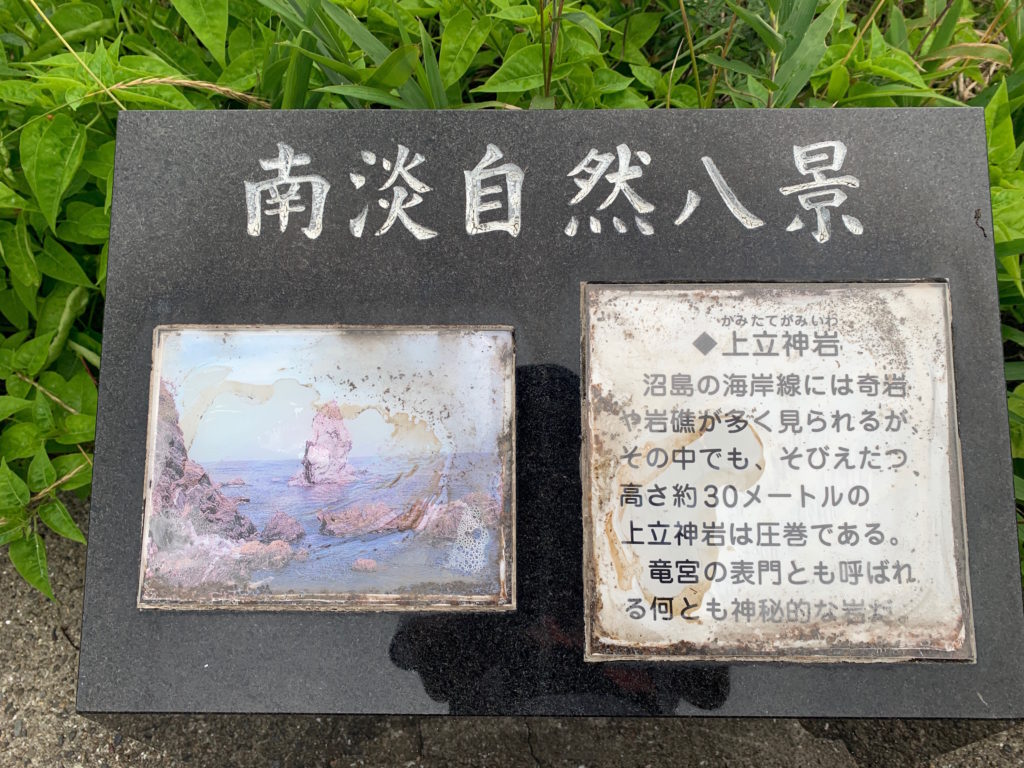 南淡自然八景
かみたてがみいわ
◆上立神岩
沼島の海岸線には奇岩
や岩礁が多く見られるが、
その中でも、そびえだつ
高さ約30メートルの
上立神岩は圧巻である。
竜宮の表門とも呼ばれ
る何とも神秘的な岩だ。